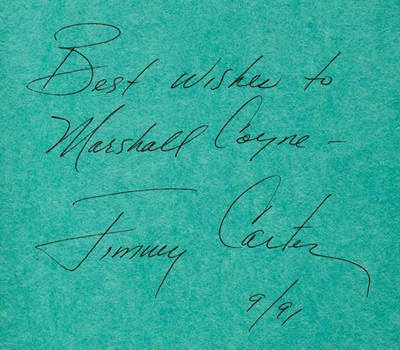 Best wishes to
Marshall Coyne -
Jimmy Carter
9/91